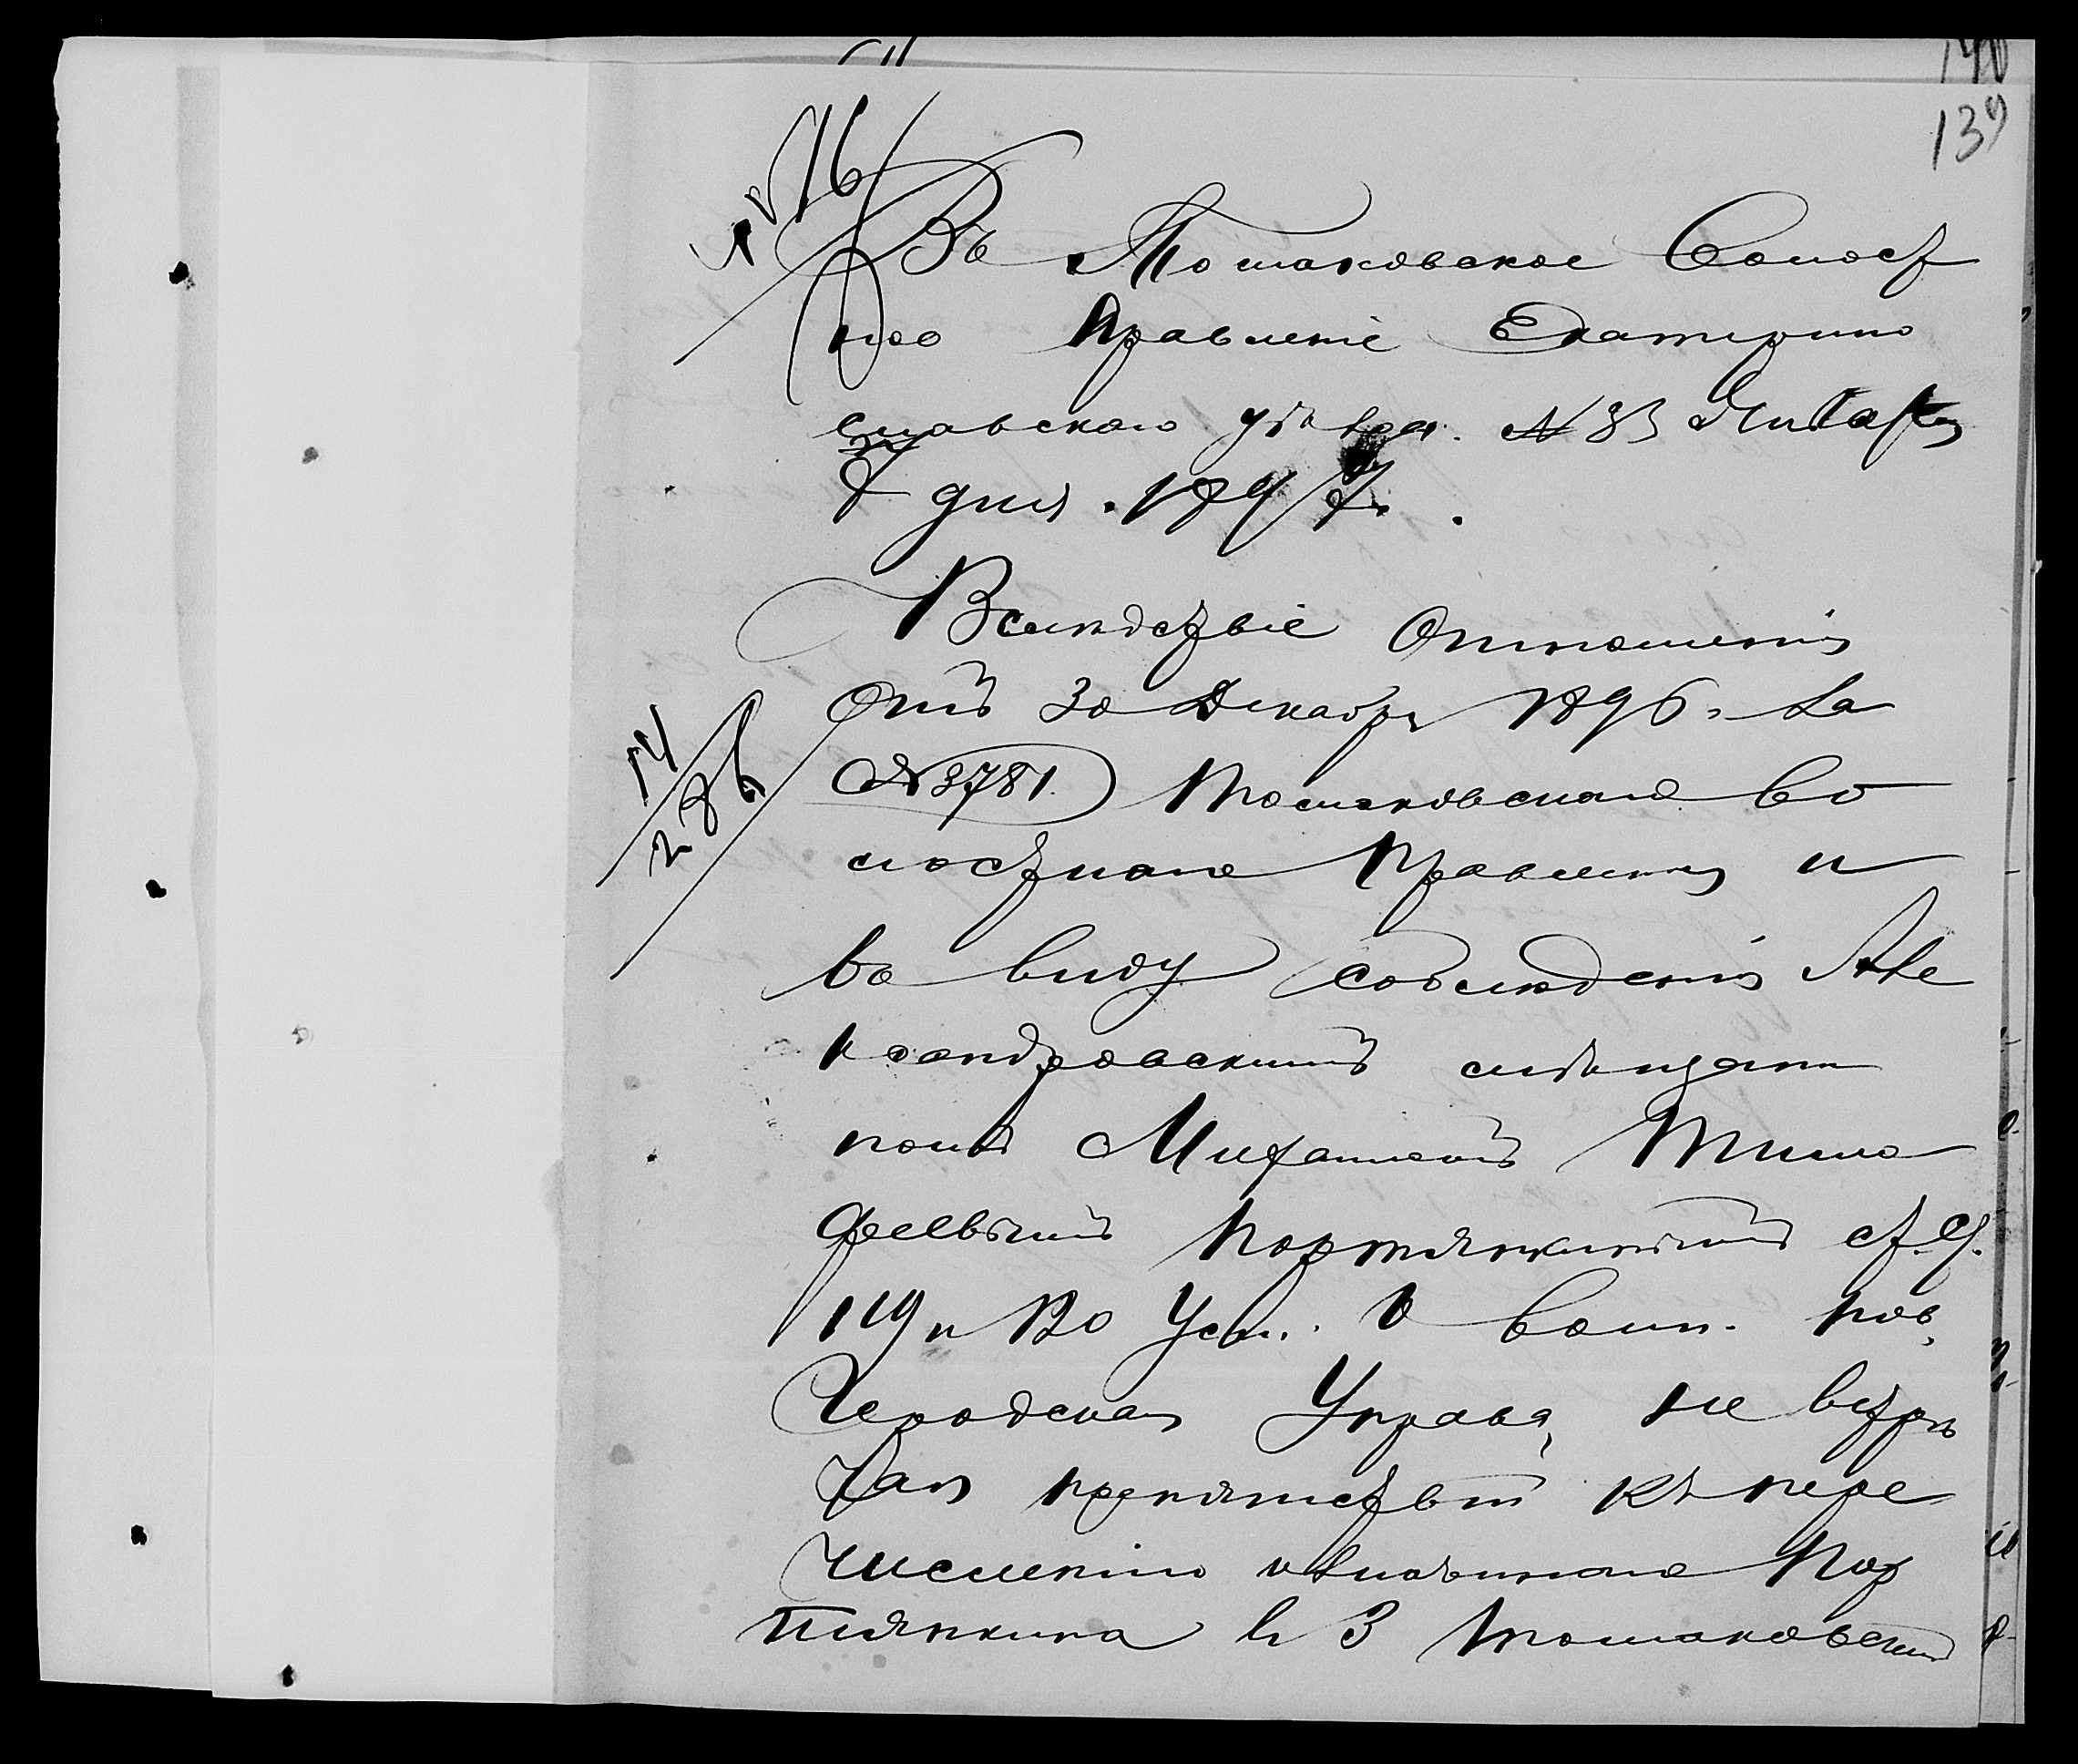 140
139
№ 76
Въ Томаковское Волост
ное Правленіе Екатерино
славскаго уѣзда. № 83 Января
7 дня. 1897 г.
Вслѣдствіе Отношенія
Отъ 30 Декабря 1896 г. за
№ 3781. Томаковскаго во
лостнаго Правленія и
въ виду соблюденія Але
ксандровскимъ мѣщани
номъ Михаиломъ Тимо
феевымъ Портянкинымъ ст. ст.
119 и 120 Уст. О воин. пов.
Городская Управа, не встрѣ
чая препятствій къ пере
численію означеннаго Пор
тянкина въ 3 Томаковскій
14
286